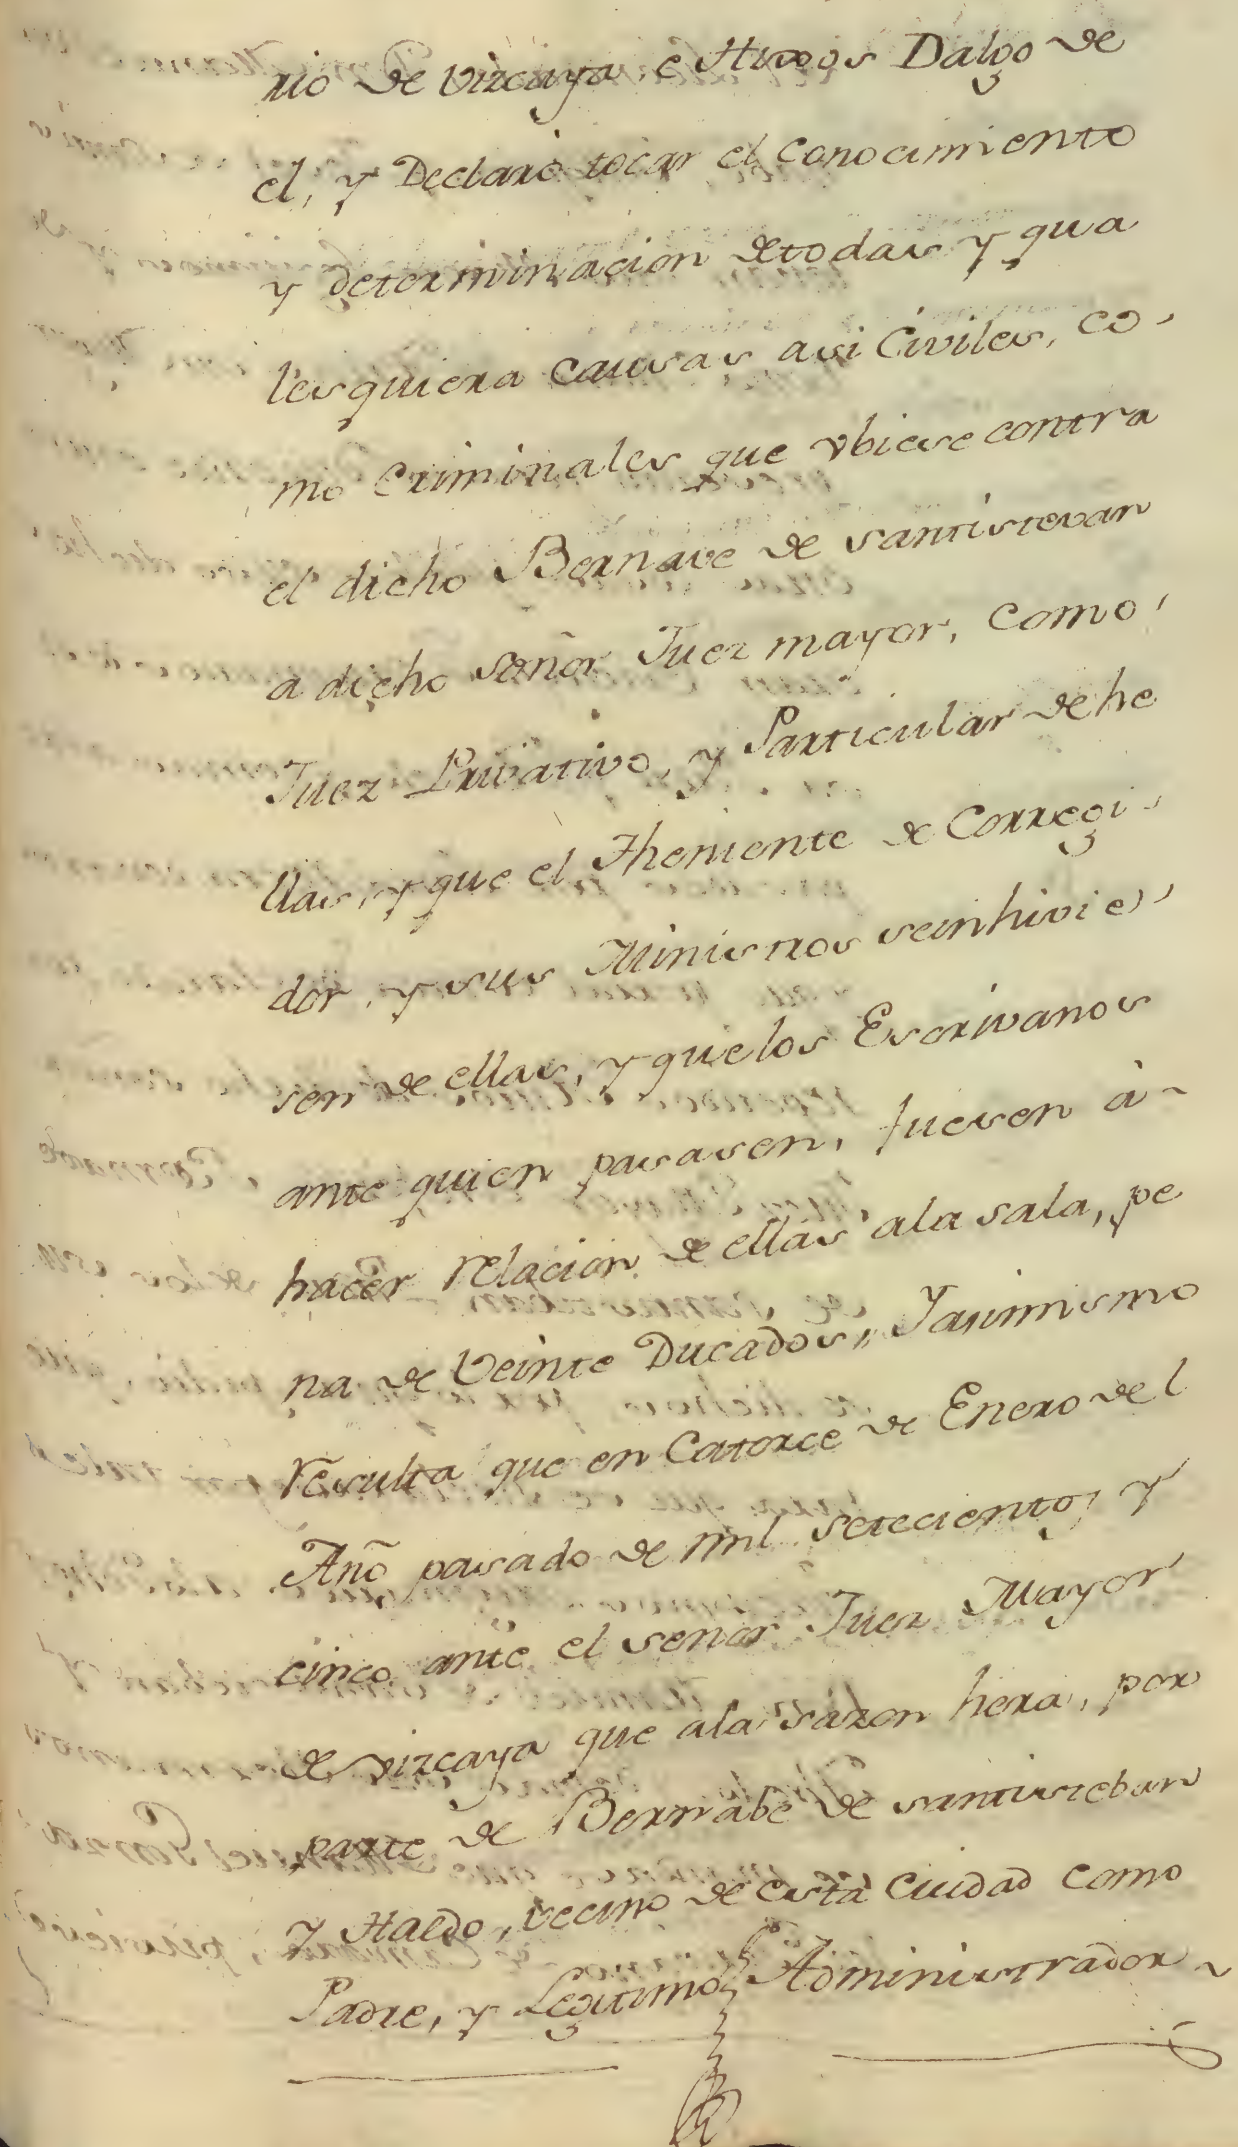 rio de Vizcaya e Hixos Dalgo de
el, y Declaro tocar el conocimiento
y determinacion de todas y qua
lesquiera causas asi Civiles, co-
mo Criminales que vbiese contra
el dicho Bernave de santistevan
a dicho señor Juez mayor, como
Juez Privativo, y Particular de he
llas, y que el Theniente de Corregi-
dor, y sus Ministros se inhivie-
sen de ellas, y que los Escrivanos
ante quien pasasen, fuesen à-
hacer relacion de ellas a la sala, pe
na de Veinte Ducados,, Y asimismo
resulta que en Catorce de Enero del
Año pasado de mil setecientos y
cinco ante el señor Juez Mayor
de vizcaya que a la sazon hera, por
parte de Bernabe de santisteban
y Haedo, vecino de esta Ciudad como
Padre, y Legitimo Administrador